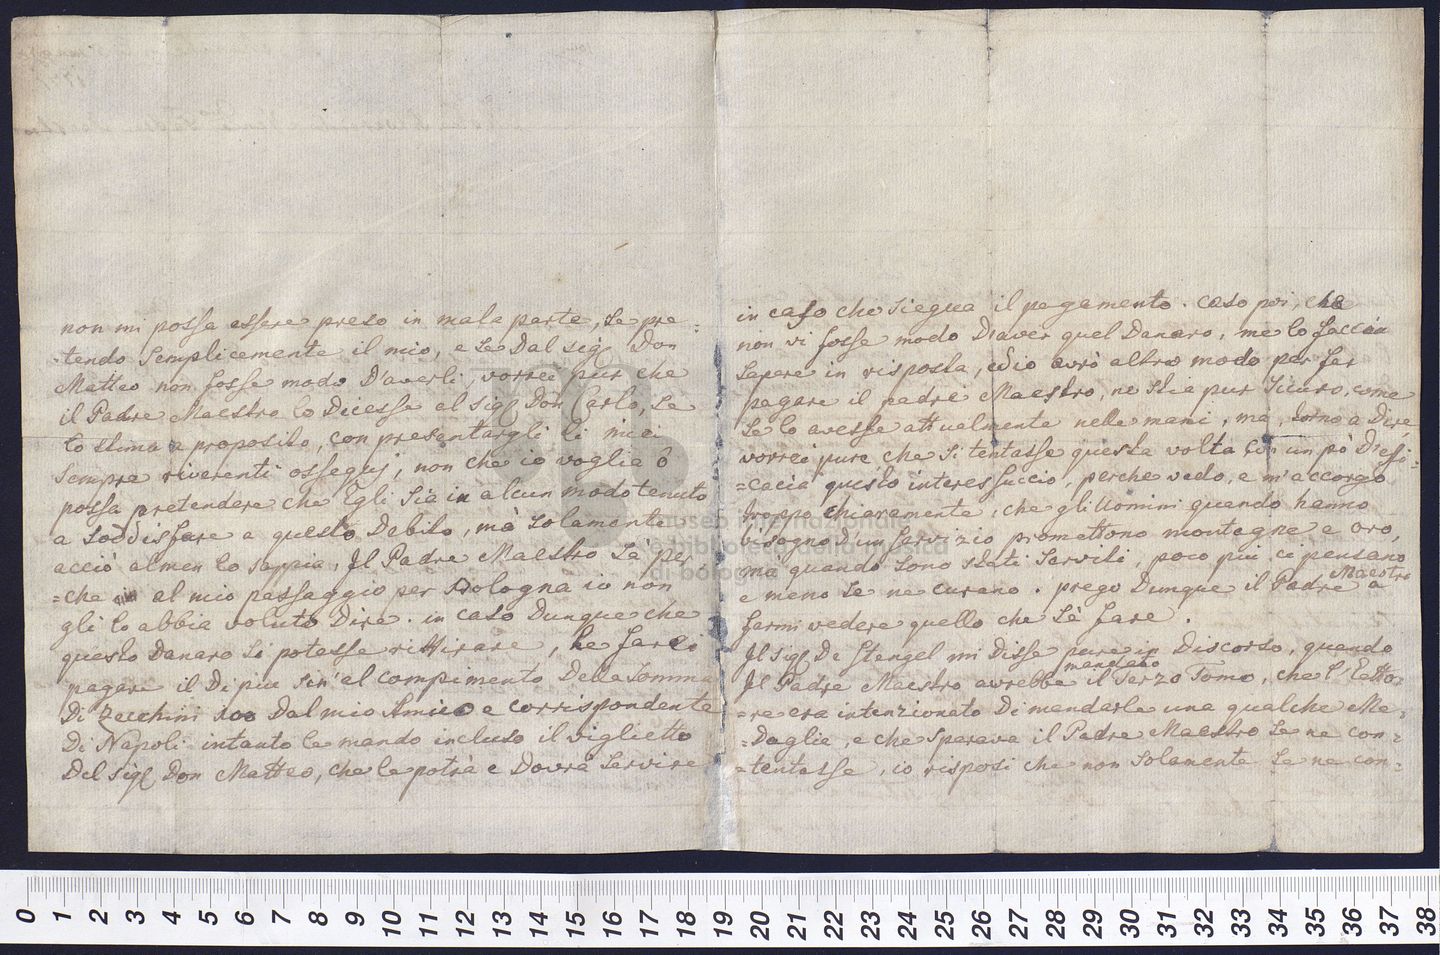 non mi possa essere preso in mala parte, se pre=
=tendo semplicemente il mio, e se dal sigr Don
Matteo non fosse modo d'averli, vorrei pur che
il Padre Maestro lo dicesse al sigr Don Carlo, se
lo stima a proposito, con presentargli li miei
sempre riverenti ossequj, non che io voglia ò
possa pretendere che Egli sia in alcun modo tenuto
a soddisfare a questo Debito, mà solamente
acciò almen lo sappia, Il Padre Maestro sà per=
=che al mio passaggio per Bologna io non
gli lo abbia voluto dire. in caso dunque che
questo danaro si potesse rittirare, le farei
pagare il di piu sin'al compimento della somma
di Zecchini 100 dal mio Amico e corrispondente
di Napoli intanto le mando incluso il viglietto
del sigr Don Matteo, che le potrà e dovrà servire
in caso che siegua il pagamento. caso poi, che
non vi fosse modo d'aver quel danaro, me lo faccia
sapere in risposta, ed io avrò altro modo per far
pagare il padre Maestro, ne stia pur sicuro, come
se lo avesse attualmente nelle mani, ma, torno a dire
vorrei pure che si tentasse questa volta con un pò d'effi=
=cacia questo interessuccio, perche vedo, e m'accorgo
troppo chiaramente, che gli Uomini quando hanno
bisogno d'un servizio promettono montagne e oro,
mà quando sono stati serviti, poco piu ci pensano
e meno se ne curano. prego dunque il Padre Maestro a
farmi vedere quello che sà fare.
Il sigr De Stengel mi disse pure in discorso, quando
Il Padre Maestro avrebbe mandato il terzo Tomo, che l'Eletto=
=re era intenzionato di mandarle una qualche Me=
=daglia, e che sperava il Padre Maestro se ne con=
=tentasse, io risposi che non solamente se ne con=
museo internazionale
e biblioteca della musica
di bologna
0 1 2 3 4 5 6 7 8 9 10 11 12 13 14 15 16 17 18 19 20 21 22 23 24 25 26 27 28 29 30 31 32 33 34 35 36 37 38